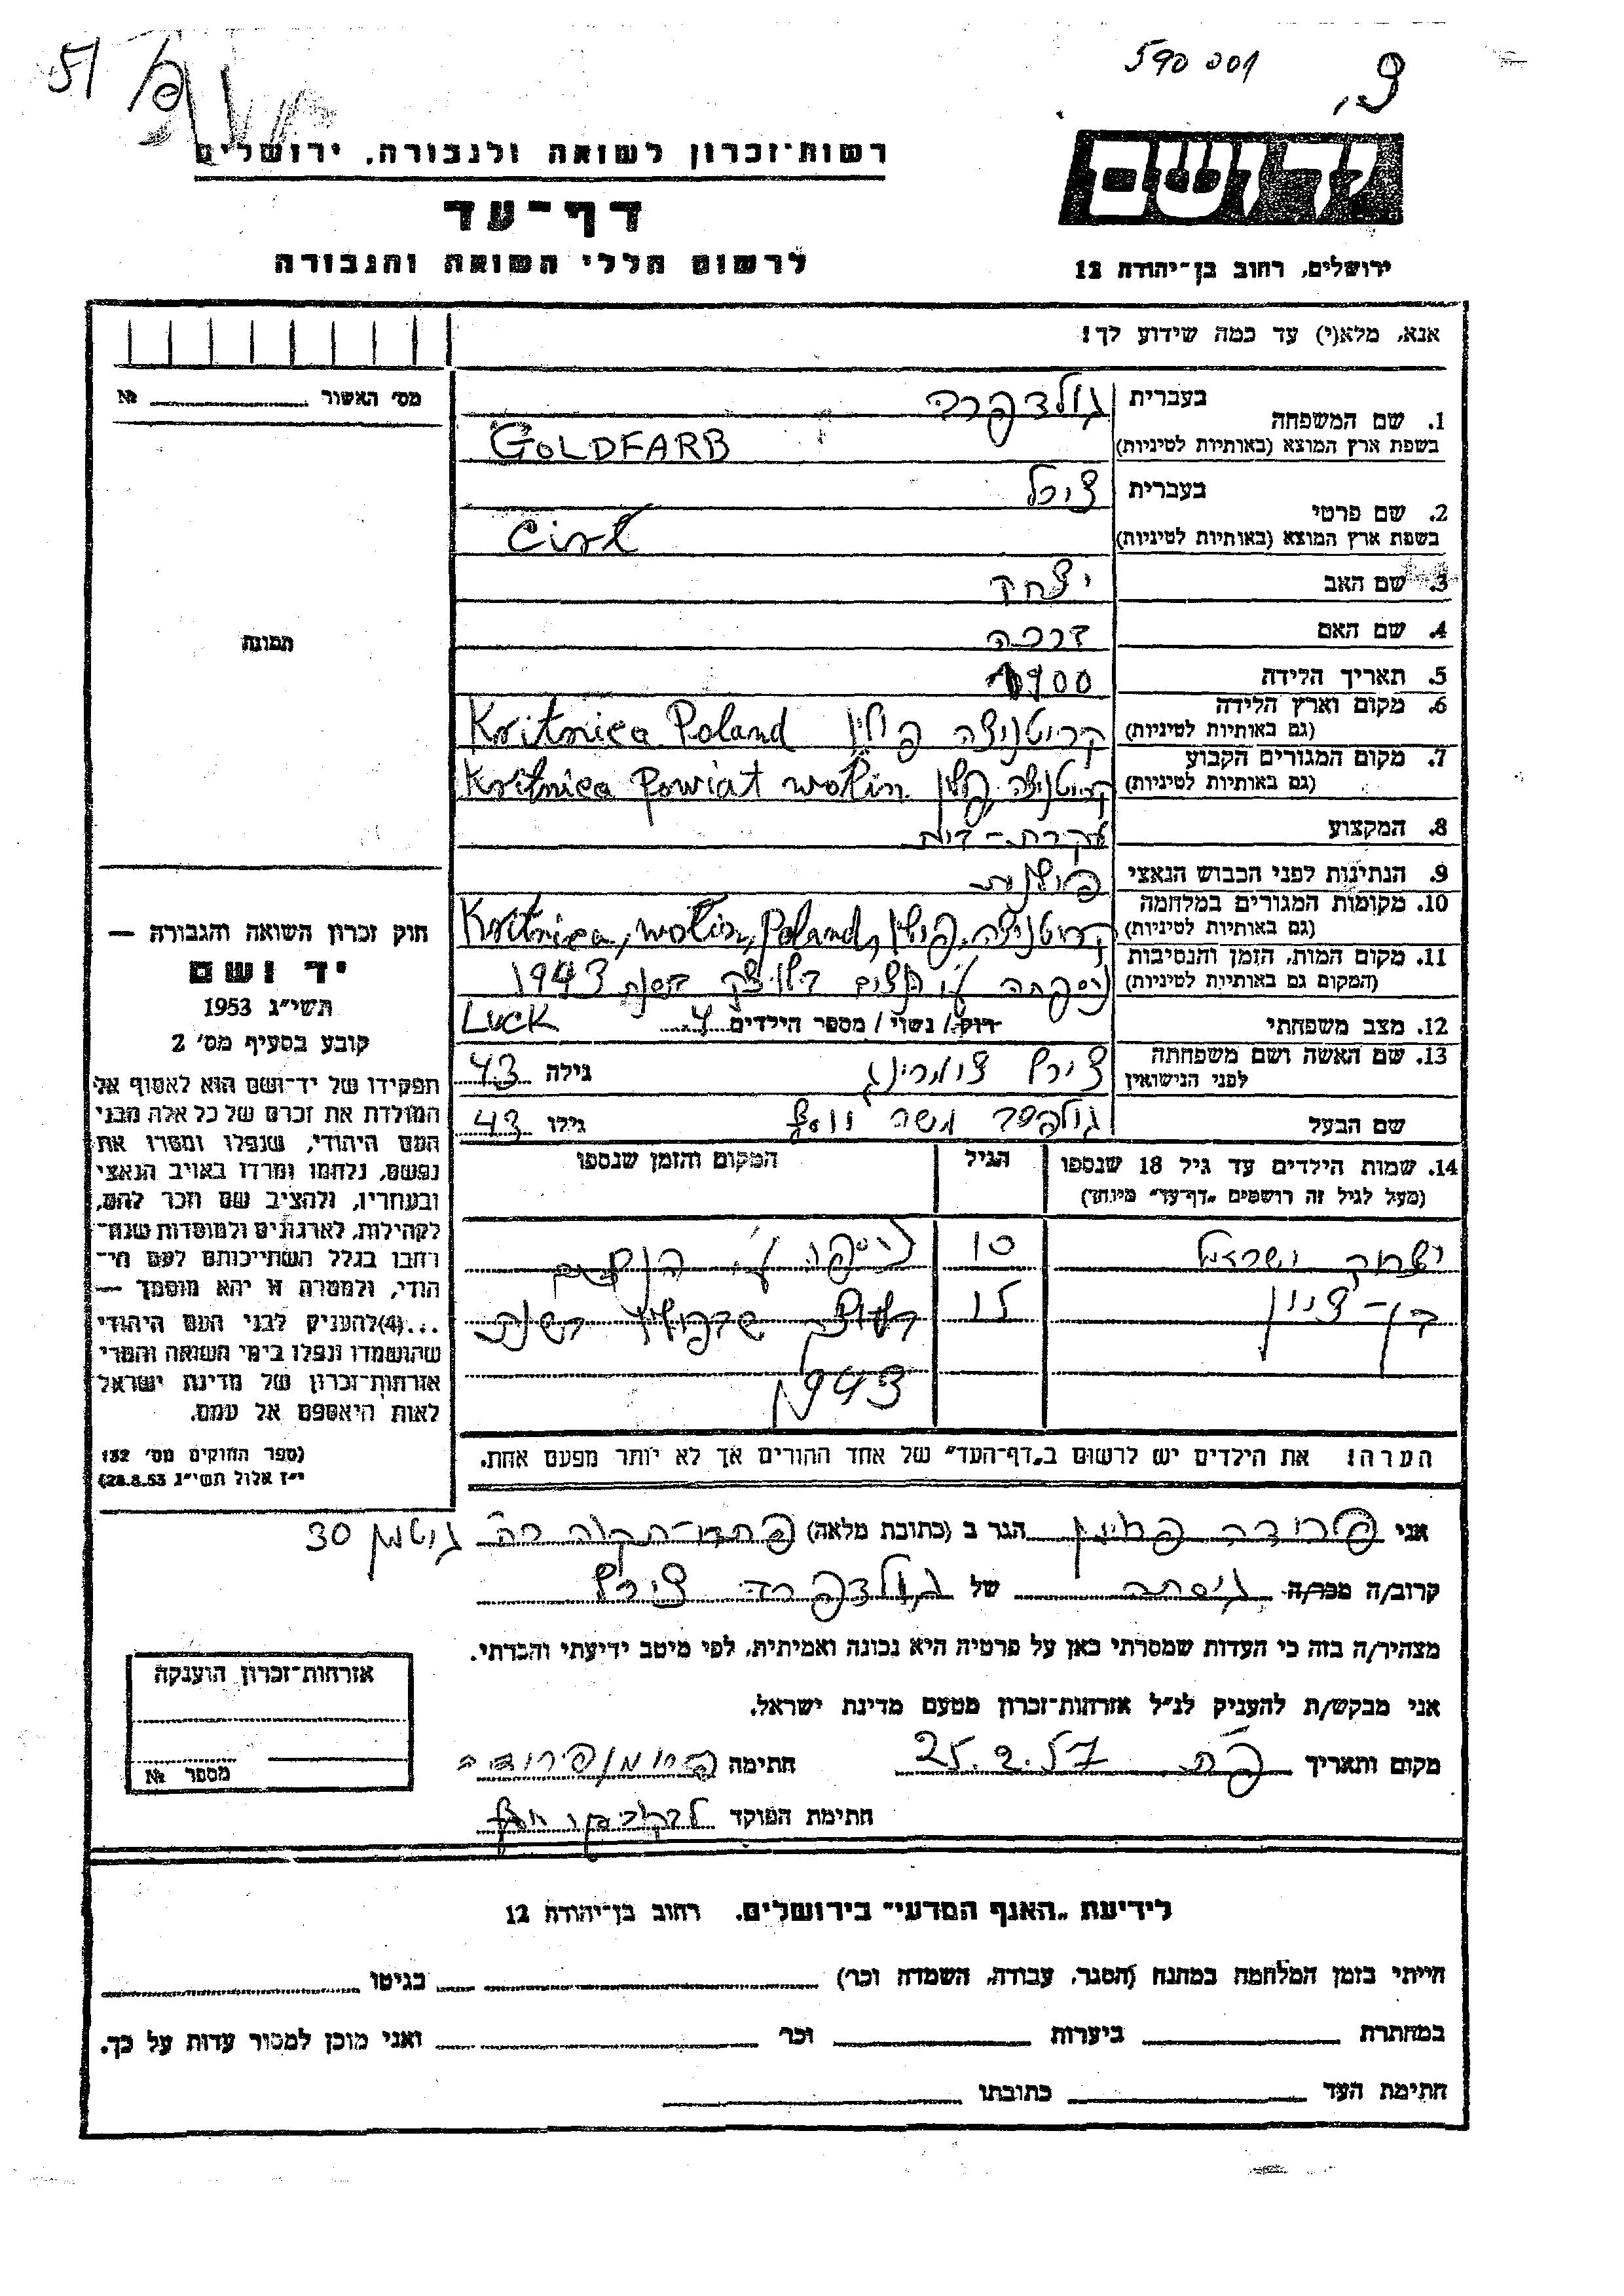 51
590 001
רשות־זכרון לשואה ולגבורה, ירושלים
דף־עד
לרשום חללי השואה והגבורה
יד ושם
ירושלים, רחוב בן־יהודה 12
אנא, מלא(י) עד כמה שידוע לך!
מס׳ האשור № 
1. שם המשפחה
בעברית גולדפרב
בשפת ארץ המוצא (באותיות לטיניות) GOLDFARB
2. שם פרטי
בעברית צירל
בשפת ארץ המוצא (באותיות לטיניות) Cirl
3. שם האב יצחק
4. שם האם
5. תאריך הלידה 1900
6. מקום וארץ הלידה
(גם באותיות לטיניות) קריטניצה פולין Kritnica Poland
7. מקום המגורים הקבוע
(גם באותיות לטיניות) קריטניצה פולין Kritnica powiat wolin
8. המקצוע עקרת-בית
9. הנתינות לפני הכבוש הנאצי פולנית
10. מקומות המגורים במלחמה
(גם באותיות לטיניות) קריטניצה פולין Kritnica, wolin, Poland
11. מקום המות, הזמן והנסיבות
(המקום גם באותיות לטיניות) נספתה ע״י הנאצים בלוצק בשנת 1943
LUCK
12. מצב משפחתי רוק/ נשוי / מספר הילדים 4
13. שם האשה ושם משפחתה
לפני הנישואין צירל צומרינג גילה 43
שם הבעל גולדפרב משה גילו 43
14. שמות הילדים עד גיל 18 שנספו
(מעל לגיל זה רושמים „דף־עד״ מיוחד)
הגיל
המקום והזמן שנספו
יצחק ישראל 10 נספה ע״י הנאצים
בן-ציון 15 בלוצק בשנת
1943
הערה: את הילדים יש לרשום ב„דף־העד״ של אחד ההורים אך לא יותר מפעם אחת.
תמונה
חוק זכרון השואה והגבורה —
יד ושם
תשי״ג 1953
קובע בסעיף מס׳ 2
תפקידו של יד־ושם הוא לאסוף אל
המולדת את זכרם של כל אלה מבני
העם היהודי, שנפלו ומסרו את
נפשם, נלחמו ומרדו באויב הנאצי
ובעוזריו, ולהציב שם וזכר להם,
לקהילות, לארגונים ולמוסדות שנח־
רחבו בגלל השתייכותם לעם הי־
הודי, ולמטרה זו יהא מוסמך —
...(4)להעניק לבני העם היהודי
שהושמדו ונפלו בימי השואה והמרי
אזרחות־זכרון של מדינת ישראל
לאות היאספם אל עמם.
(ספר החוקים מס׳ 132
י״ז אלול תשי״ג 28.8.53)
אני הגר ב (כתובת מלאה) פתח-תקוה רח׳ גוטמן 30
קרוב/ה מכר/ה גיסתה של גולדפרב צירל
מצהיר/ה בזה כי העדות שמסרתי כאן על פרטיה היא נכונה ואמיתית, לפי מיטב ידיעתי והכרתי.
אני מבקש/ת להעניק לנ״ל אזרחות־זכרון מטעם מדינת ישראל.
מקום ותאריך פ״ת 25.2.57 חתימה
חתימת הפוקד
אזרחות־זכרון הוענקה
מספר №
לידיעת „האגף המדעי״ בירושלים. רחוב בן־יהודה 12
הייתי בזמן המלחמה במחנה (הסגר, עבודה, השמדה וכו׳) בגיטו
במחתרת ביערות וכו׳ ואני מוכן למסור עדות על כך.
חתימת העד כתובתו